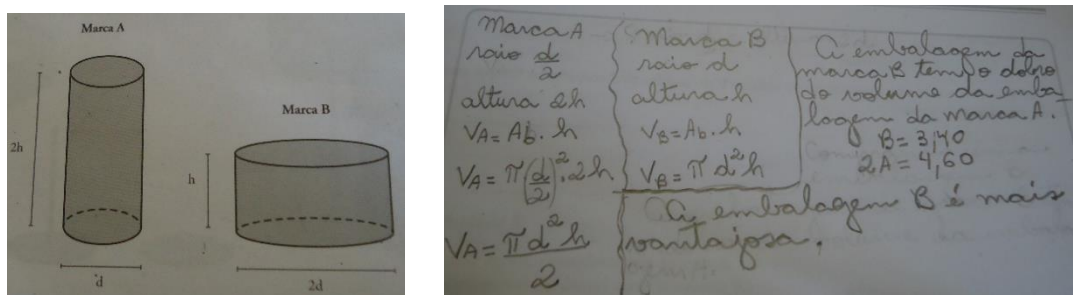 Marca A
2h
d
Marca B
h
2d
Marca A
raio d/2
altura 2h
VA = Ab . h
VA = π(d/2)² . 2h
VA = πd²h/2
Marca B
raio d
altura h
VB = Ab . h
VB = π d² h
A embalagem da
marca B tem o dobro
do volume da emba-
lagem da marca A.
B = 3,40
2A = 4,60
A embalagem B é mais
vantajosa.